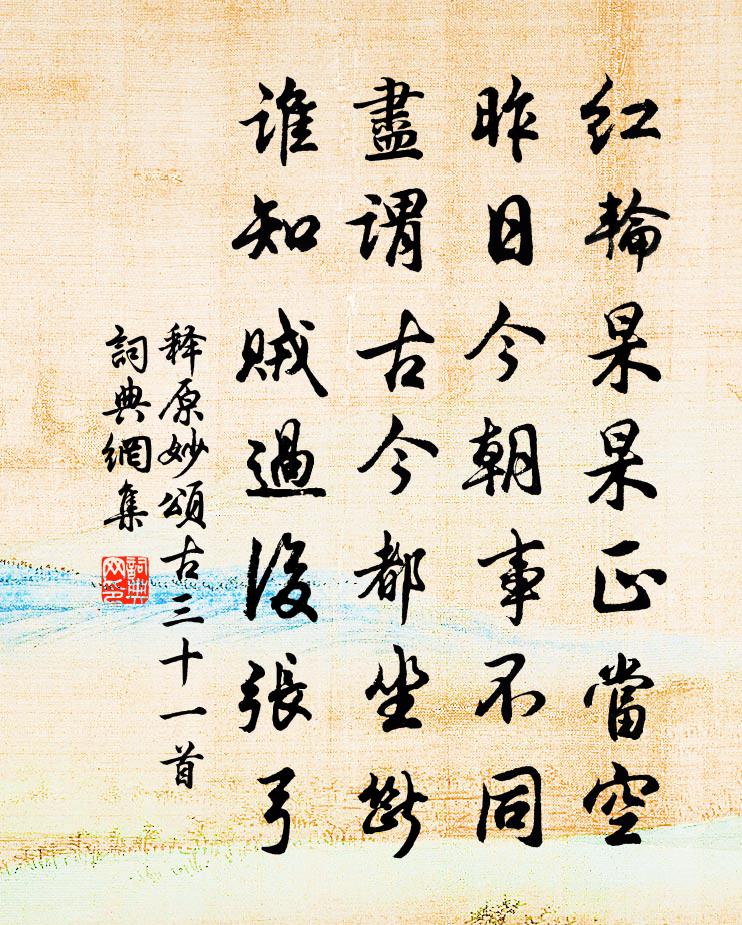 红輪杲杲正當空
昨日今朝事不同
盡謂古今都坐斷
誰知賊過後張弓
释原妙頌古三十一首
詞典網集